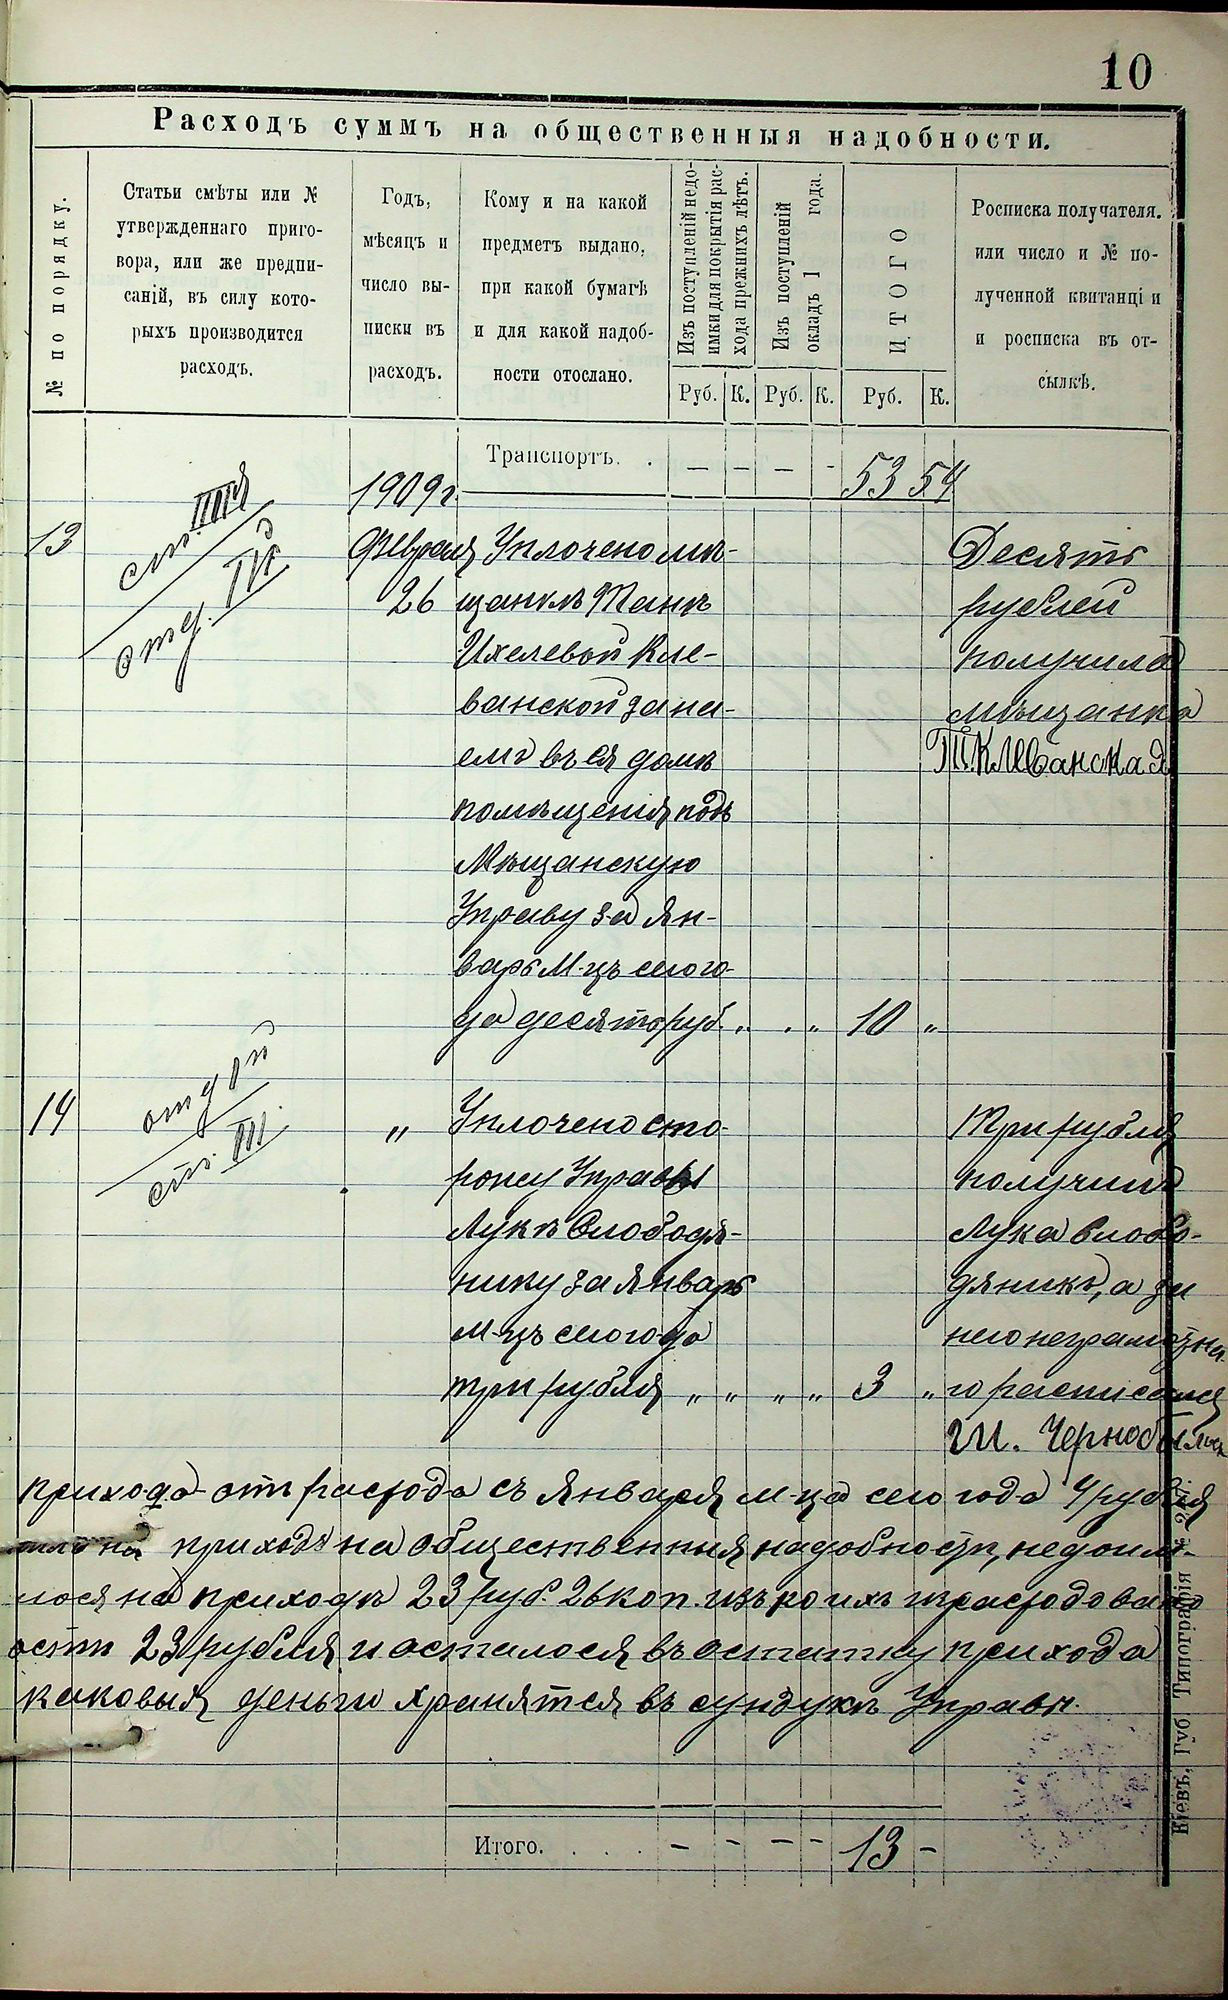 10
Расходъ суммъ на общественныя надобности.
№ по порядку.
Статьи смѣты или №
утвержденнаго приго-
вора, или же предпи-
саній, въ силу кото-
рыхъ производится
расходъ.
Годъ,
мѣсяцъ и
число вы-
писки въ
расходъ.
Кому и на какой
предметъ выдано,
при какой бумагѣ
и для какой надоб-
ности отослано.
Изъ поступленій недо-
имки для покрытія рас-
хода прежнихъ лѣтъ.
Изъ поступленій
окладъ 1 года.
ИТОГО
Росписка получателя.
или число и № по-
лученной квитанціи
и росписка въ от-
сылкѣ.
Руб. К. Руб. К. Руб. К.
Транспортъ. . — — — - 53 54
1909 г.
13
ст. IIIя
отд. IV
Февраля
26
Уплочено мѣ-
щанкѣ Танѣ
Ихелевой Кле-
ванской за на-
емъ въ ея домѣ
помѣщенія подъ
Мѣщанскую
Управу за Ян-
варь М-цъ сего го-
да десять руб. „ . „ 10 „
Десять
рублей
получила
мѣщанка
Т. Клеванская
14
отд
ст. III.
„
Уплочено сто-
рожу Управы
Лукѣ Слободя-
нику за Январь
м-цъ сего года
три рубля „ „ „ „ 3 „
Три рубля
получилъ
Лука Слобо-
дяникъ, а за
него неграмотна-
го росписался
Ш. Чернобыльск
прихода отъ расхода съ Января м-ца сего года 4 рубля
на приходъ на общественныя надобности, недоим-
лося на приходъ 23 руб. 26 коп. изъ коихъ израсходовано
ости 23 рубля и осталося въ остатку прихода
каковыя деньги хранятся въ сундукѣ Управы.
Итого. . . . — - — - 13 -
Кіевъ, Губ. Типографія